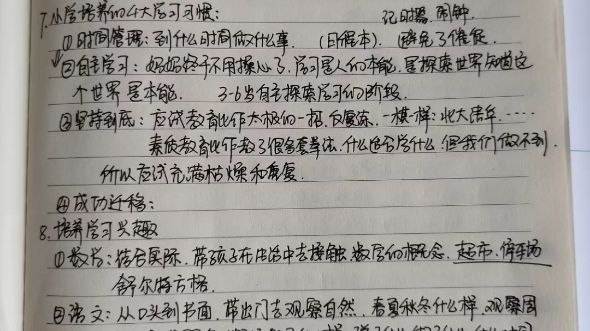 7.小学培养的4大学习习惯： 记时器.闹钟.
①时间管理：到什么时间做什么事. （日程本）. 避免了催促.
②自主学习：妈妈终于不用操心了.学习是人的本能.是探索世界知道这
个世界是本能. 3-6岁自主探索学习的阶段.
③坚持到底：应试教育比作太极的一招.反复练.一模一样：北大青年.……
素质教育比作教了很多套拳法.什么适合学什么.但我们做不到.
所以应试充满枯燥和重复.
④成功迁移：
8.培养学习兴趣
①数学：结合实际.带孩子在生活中去接触数学的概念.超市.停车场
舒尔特方格.
②语文：从口头到书面.带出门去观察自然.春夏秋冬什么样.观察周